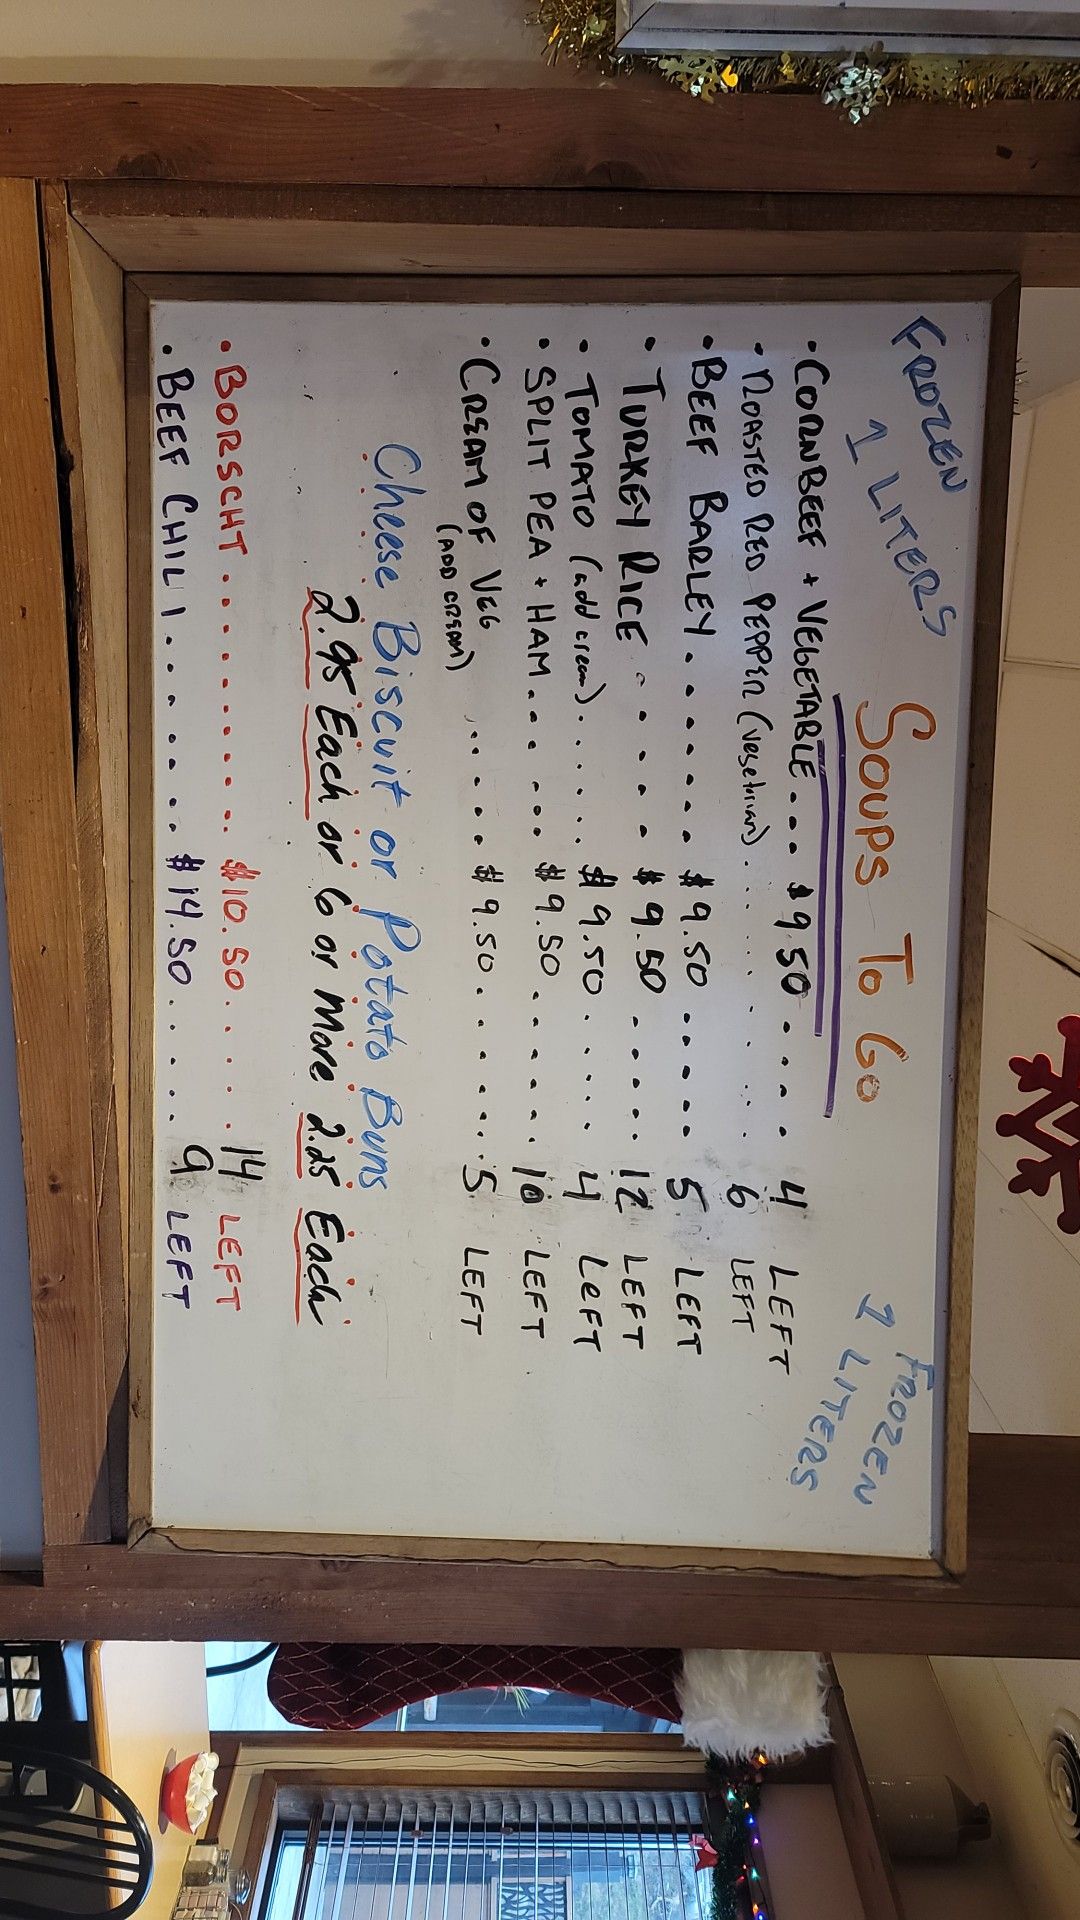 FROZEN 1 LITERS
SOUPS TO GO
FROZEN 1 LITERS
• CORNBEEF + VEGETABLE.... $9.50.... 4 LEFT
• ROASTED RED PEPPER (vegetarian)........... 6 LEFT
• BEEF BARLEY....... $9.50..... 5 LEFT
• TURKEY RICE..... $9.50..... 12 LEFT
• TOMATO (add cream)...... $9.50..... 4 LEFT
• SPLIT PEA + HAM...... $9.50...... 10 LEFT
• CREAM OF VEG (ADD CREAM)...... $9.50...... 5 LEFT
Cheese Biscuit or Potato Buns
2.95 Each or 6 or More 2.25 Each
• BORSCHT.......... $10.50..... 14 LEFT
• BEEF CHILI....... $14.50...... 9 LEFT